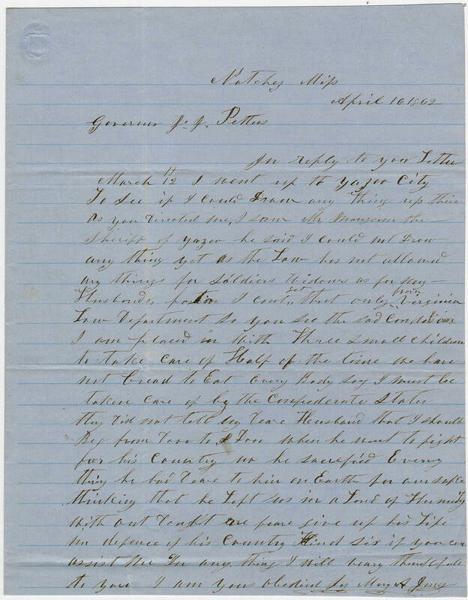 Natchez Miss
April 10 1862
Governor J. J. Pettus
In reply to you Letter
March 12th I went up to Yazoo City
To See if I Could Draw any thing up thire
As you directed me, I saw Mr the
Sheriff of yazoo he said I Could not Draw
any thing yet as the Law has not allowed
any things for Soldiers Widows as for my
Husbands I cont get that only from Virginia
War Department So you See the sad Condition
I am placed in With Three small children
to take care of Half of the time we have
not bread to Eat Every Body say I must be
taken Care of by the Confederate States
they did not tell my Deare Husband that I should
Beg from Door to Door when he went to fight
for his Country no he sacrefied Every
thing he had Deare to him on Earth for our sake
thinking that he Left us in a Land of Humanity
With out or feare give up his Life
in defence of his Country Kind Sir if you can
assist Me In any thing I will be very thankful
to you I am you obedient Mary A Jones